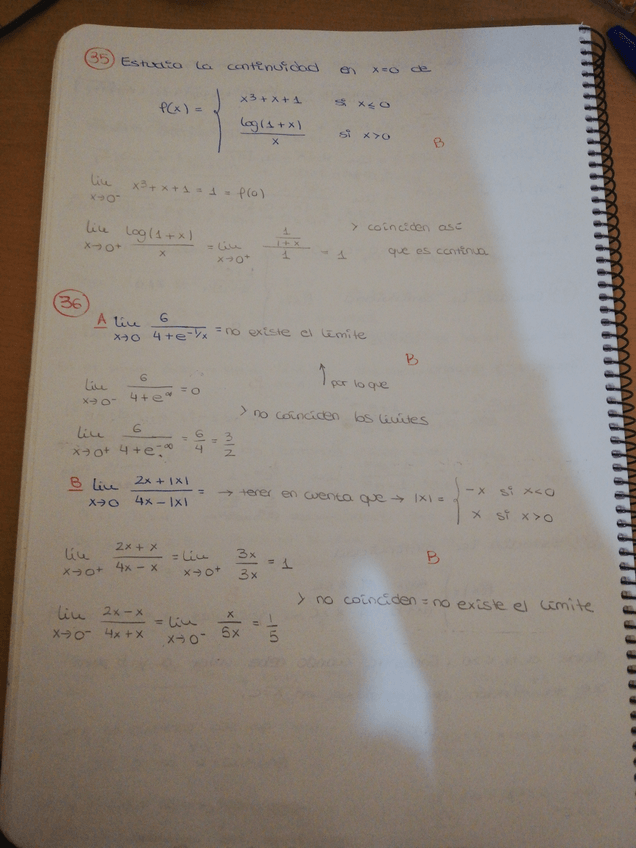 35 Estudia la continuidad en x=0 de
f(x) = { x³+x+1 si x≤0
log(1+x)/x si x>0
B
lim x→0⁻ x³+x+1 = 1 = f(0)
lim x→0⁺ log(1+x)/x = lim x→0⁺ (1/(1+x))/1 = 1 > coinciden así
que es continua
36
A lim x→0 6/(4+e^(-1/x)) = no existe el límite
B
↑ por lo que
lim x→0⁻ 6/(4+e^∞) = 0
> no coinciden los límites
lim x→0⁺ 6/(4+e^(-∞)) = 6/4 = 3/2
B lim x→0 (2x+|x|)/(4x-|x|) = → tener en cuenta que → |x| = { -x si x<0
x si x>0
B
lim x→0⁺ (2x+x)/(4x-x) = lim x→0⁺ 3x/3x = 1
> no coinciden = no existe el límite
lim x→0⁻ (2x-x)/(4x+x) = lim x→0⁻ x/5x = 1/5